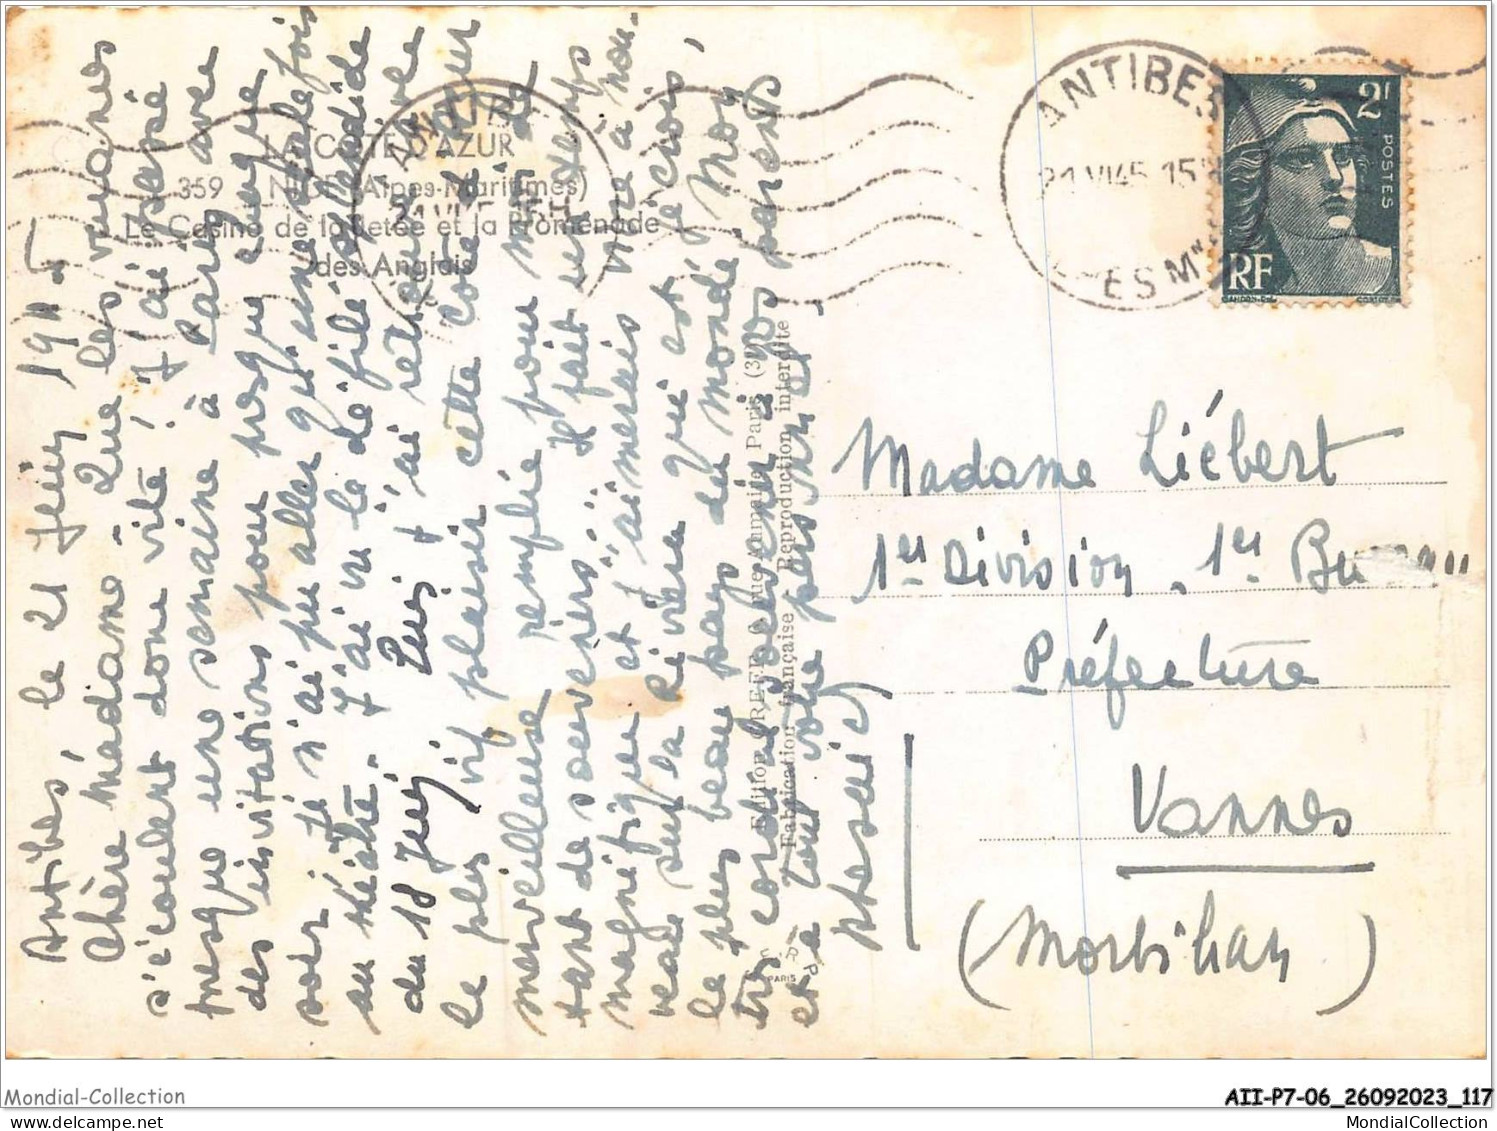 Antibes, le 21 Juin 1945
Chère Madame, Que les semaines
s'écoulent donc vite! J'ai passé
presque une semaine à Paris avec
des invitations pour presque chaque
soir, je n'ai pu aller qu'une seule fois
au théâtre. J'ai vu le défilé splendide
du 18 Juin. Puis j'ai retrouvé avec
le plus vif plaisir cette côte d'Azur
merveilleuse remplie pour moi de
tant de souvenirs... Il fait un temps
magnifique et j'aimerais vivre à nou-
veau sur la Riviera qui est, je crois,
le plus beau pays du monde! Mon
très cordial souvenir à vos parents
et à tous
LA CÔTE D'AZUR
359 NICE (Alpes-Maritimes)
Le Casino de la Jetée et la Promenade
des Anglais
Edition rue Paris (3e)
Fabrication française - Reproduction interdite
PARIS
ANTIBES
21 VI 45 15H
ANTIBES
21 VI 45 15H
ES Mmes
2F
POSTES
RF
GANDON
Madame Liébert
1ère Division, 1er Bureau
Préfecture
Vannes
(Morbihan)
Mondial-Collection
AII-P7-06_26092023_117
MondialCollection